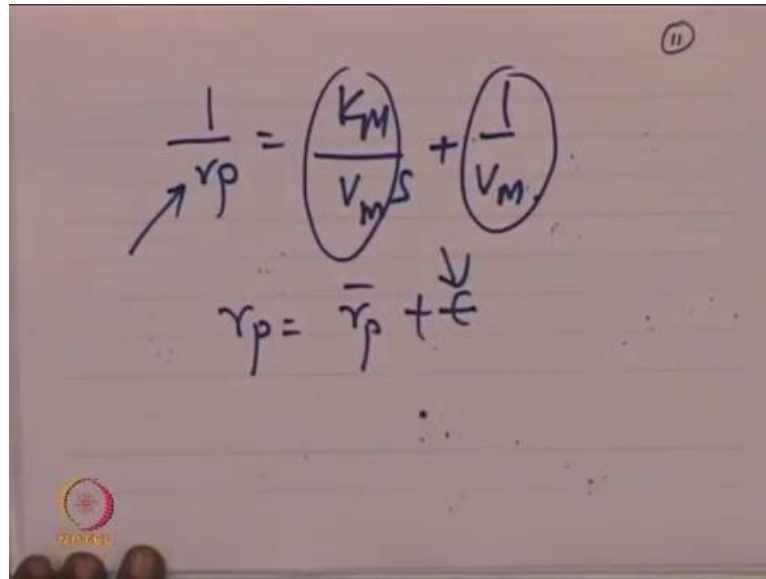 11
1/rp = KM/VmS + 1/Vm
rp = r̄p + ϵ
NPTEL